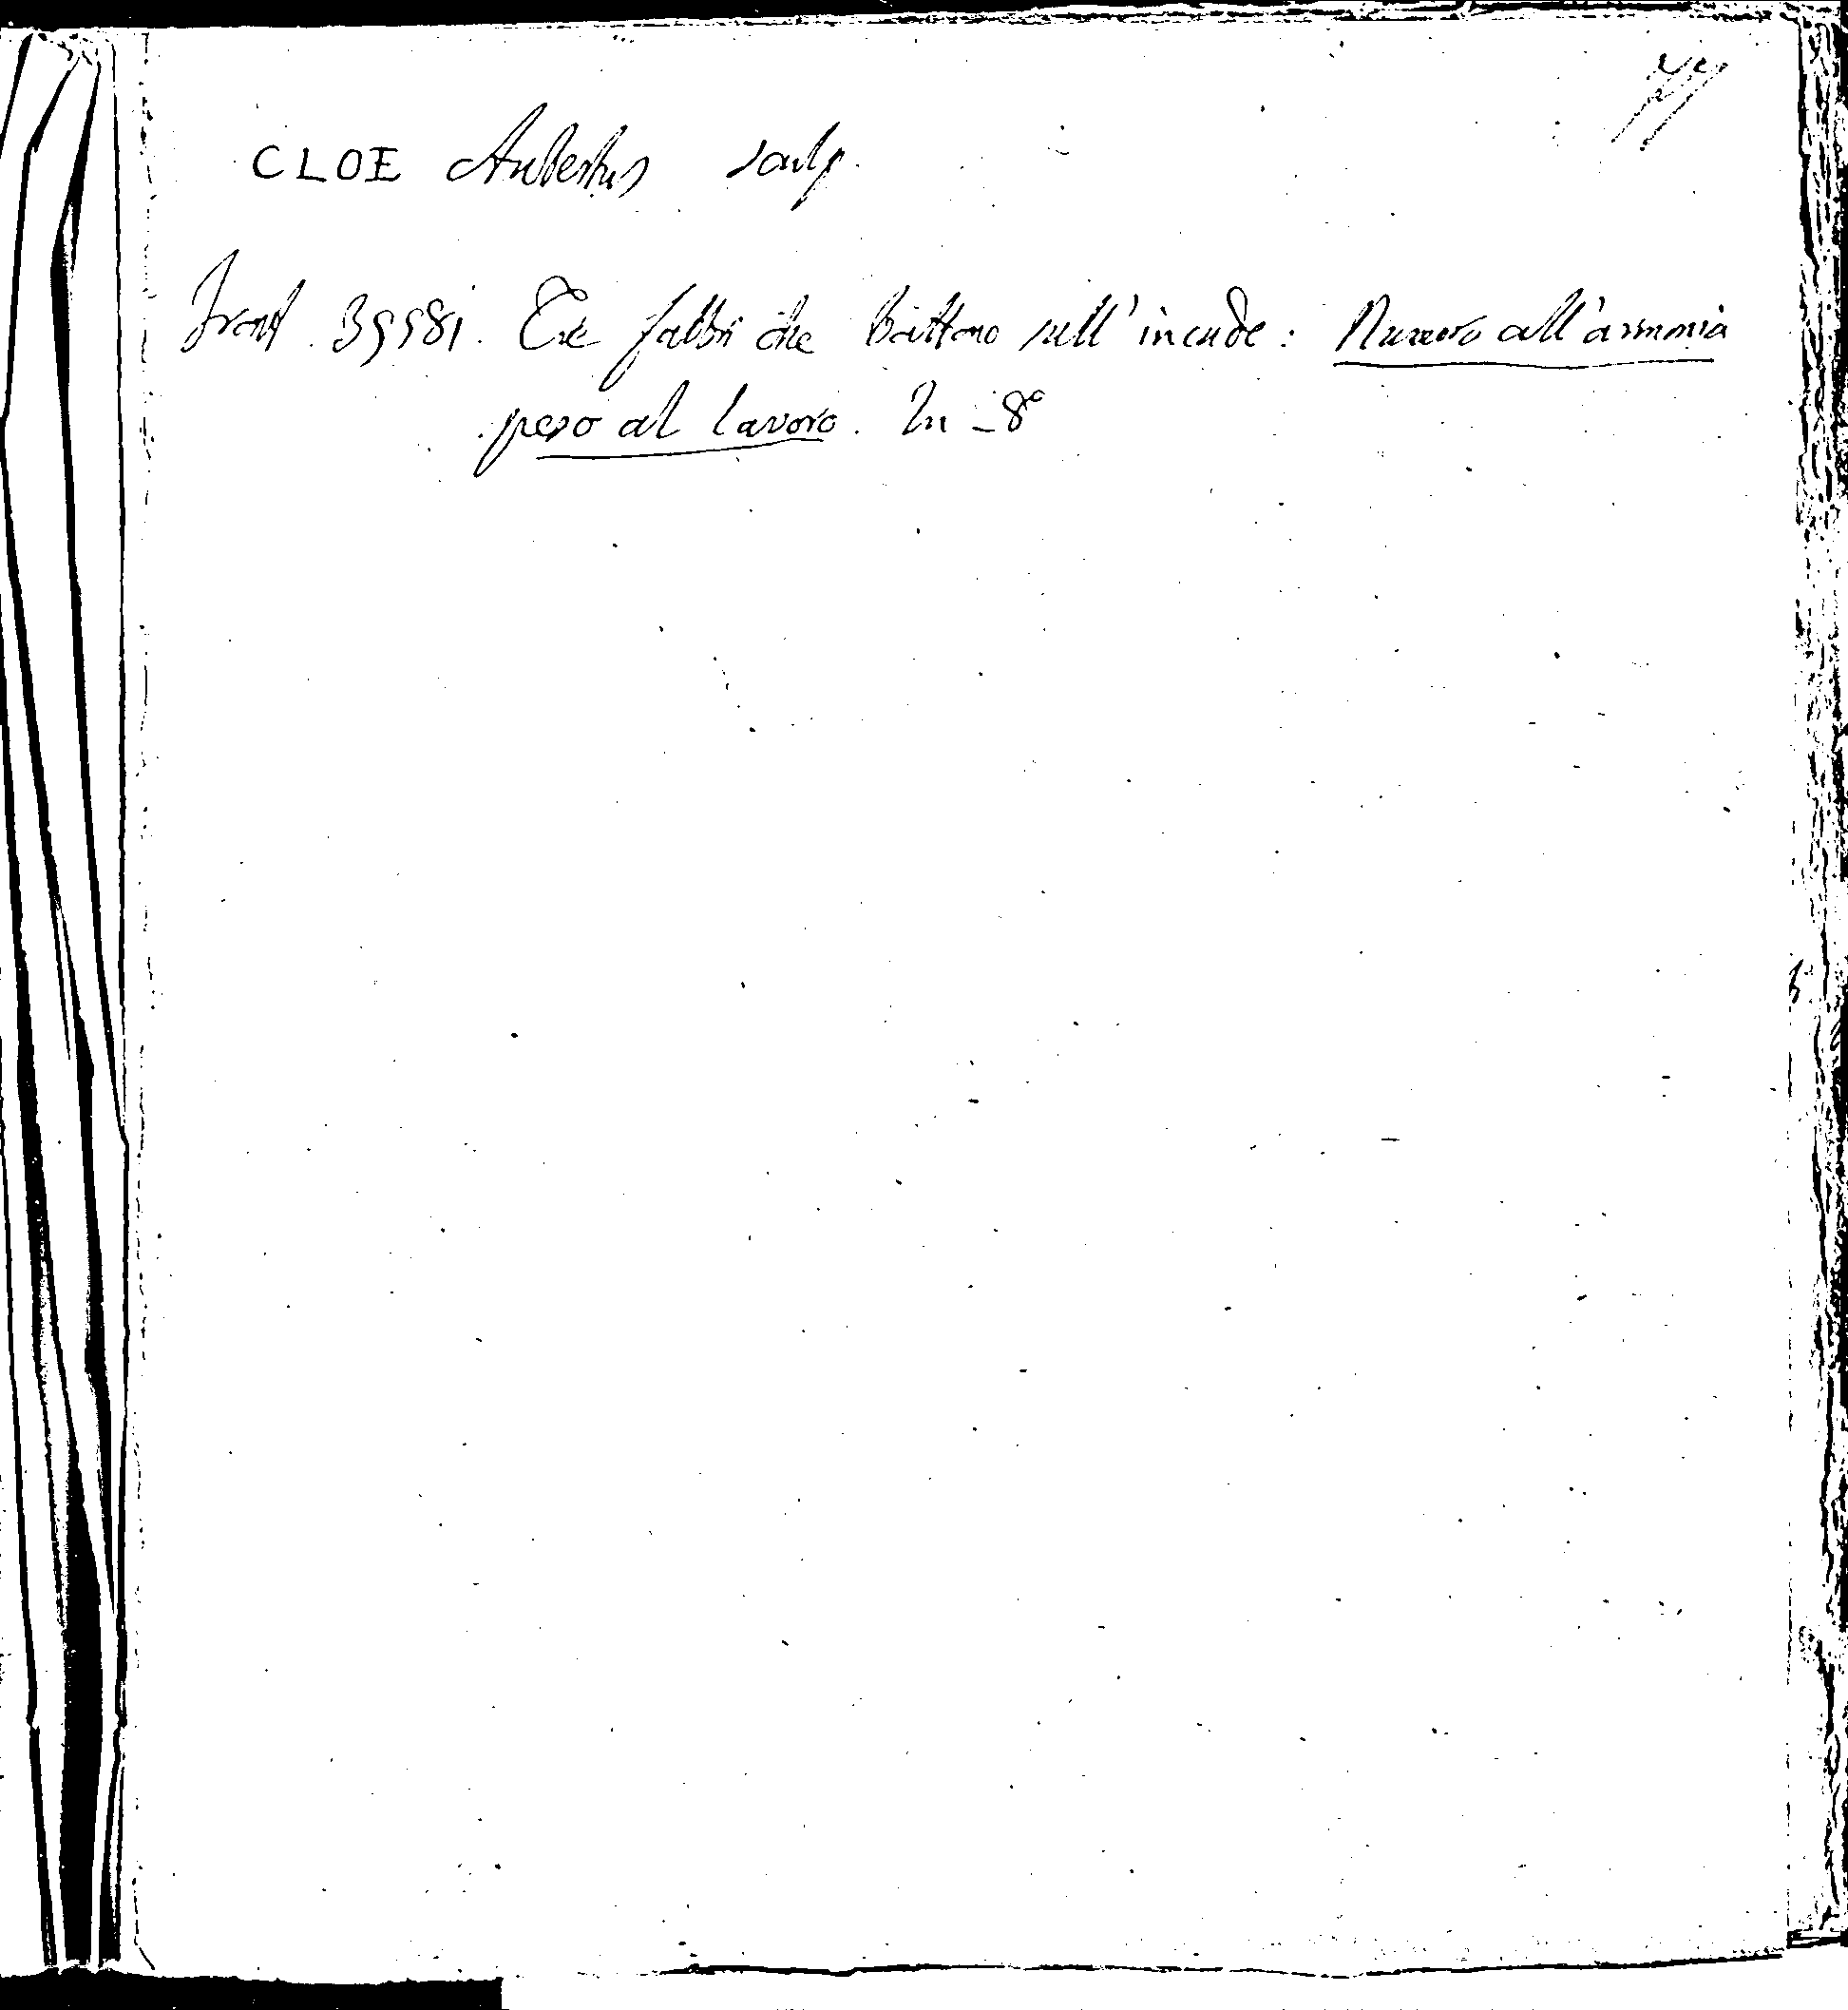 77
CLOE Aubertus sculp.
Front. 39981. Tre fabbri che battono sull'incude: Numero all'armonia
peso al lavoro. In-8°